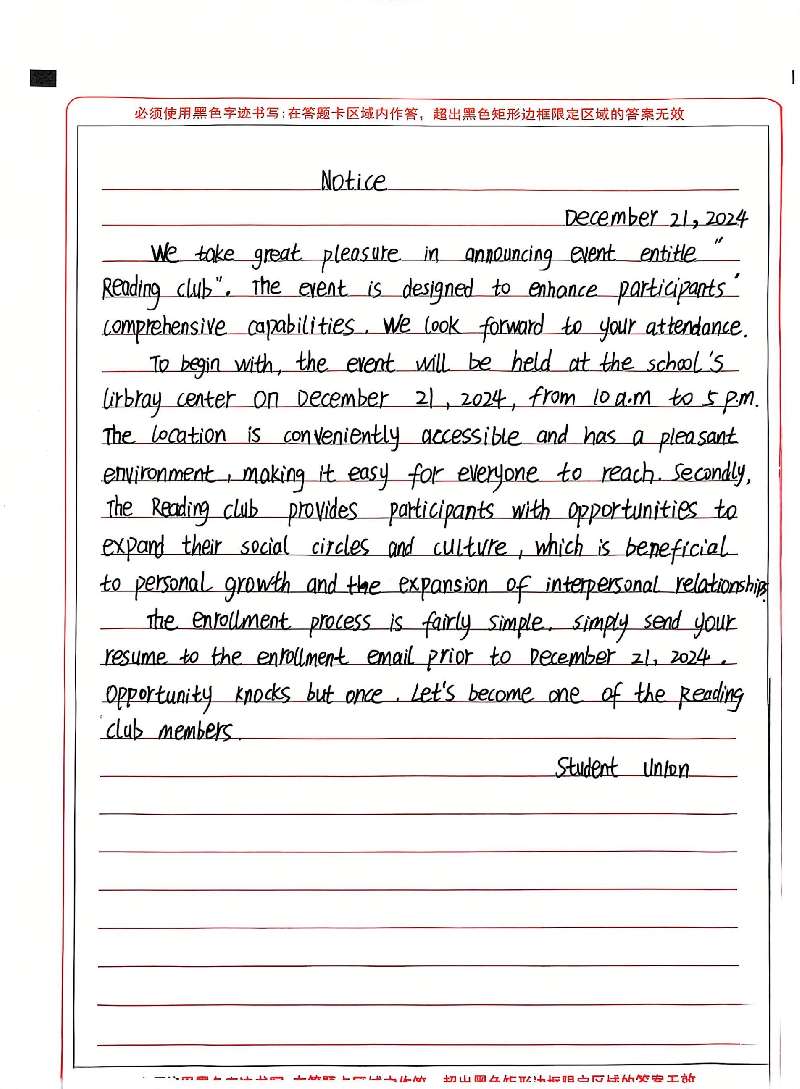 必须使用黑色字迹书写;在答题卡区域内作答，超出黑色矩形边框限定区域的答案无效
Notice
December 21, 2024
We take great pleasure in announcing event entitle "
Reading club". The event is designed to enhance participants'
comprehensive capabilities. We look forward to your attendance.
To begin with, the event will be held at the school's
lirbray center on December 21, 2024, from 10 a.m to 5 p.m.
The location is conveniently accessible and has a pleasant
environment, making it easy for everyone to reach. Secondly,
the Reading club provides participants with opportunities to
expand their social circles and culture, which is beneficial
to personal growth and the expansion of interpersonal relationships.
The enrollment process is fairly simple. Simply send your
resume to the enrollment email prior to December 21, 2024.
Opportunity knocks but once. Let's become one of the Reading
club members.
Student Union